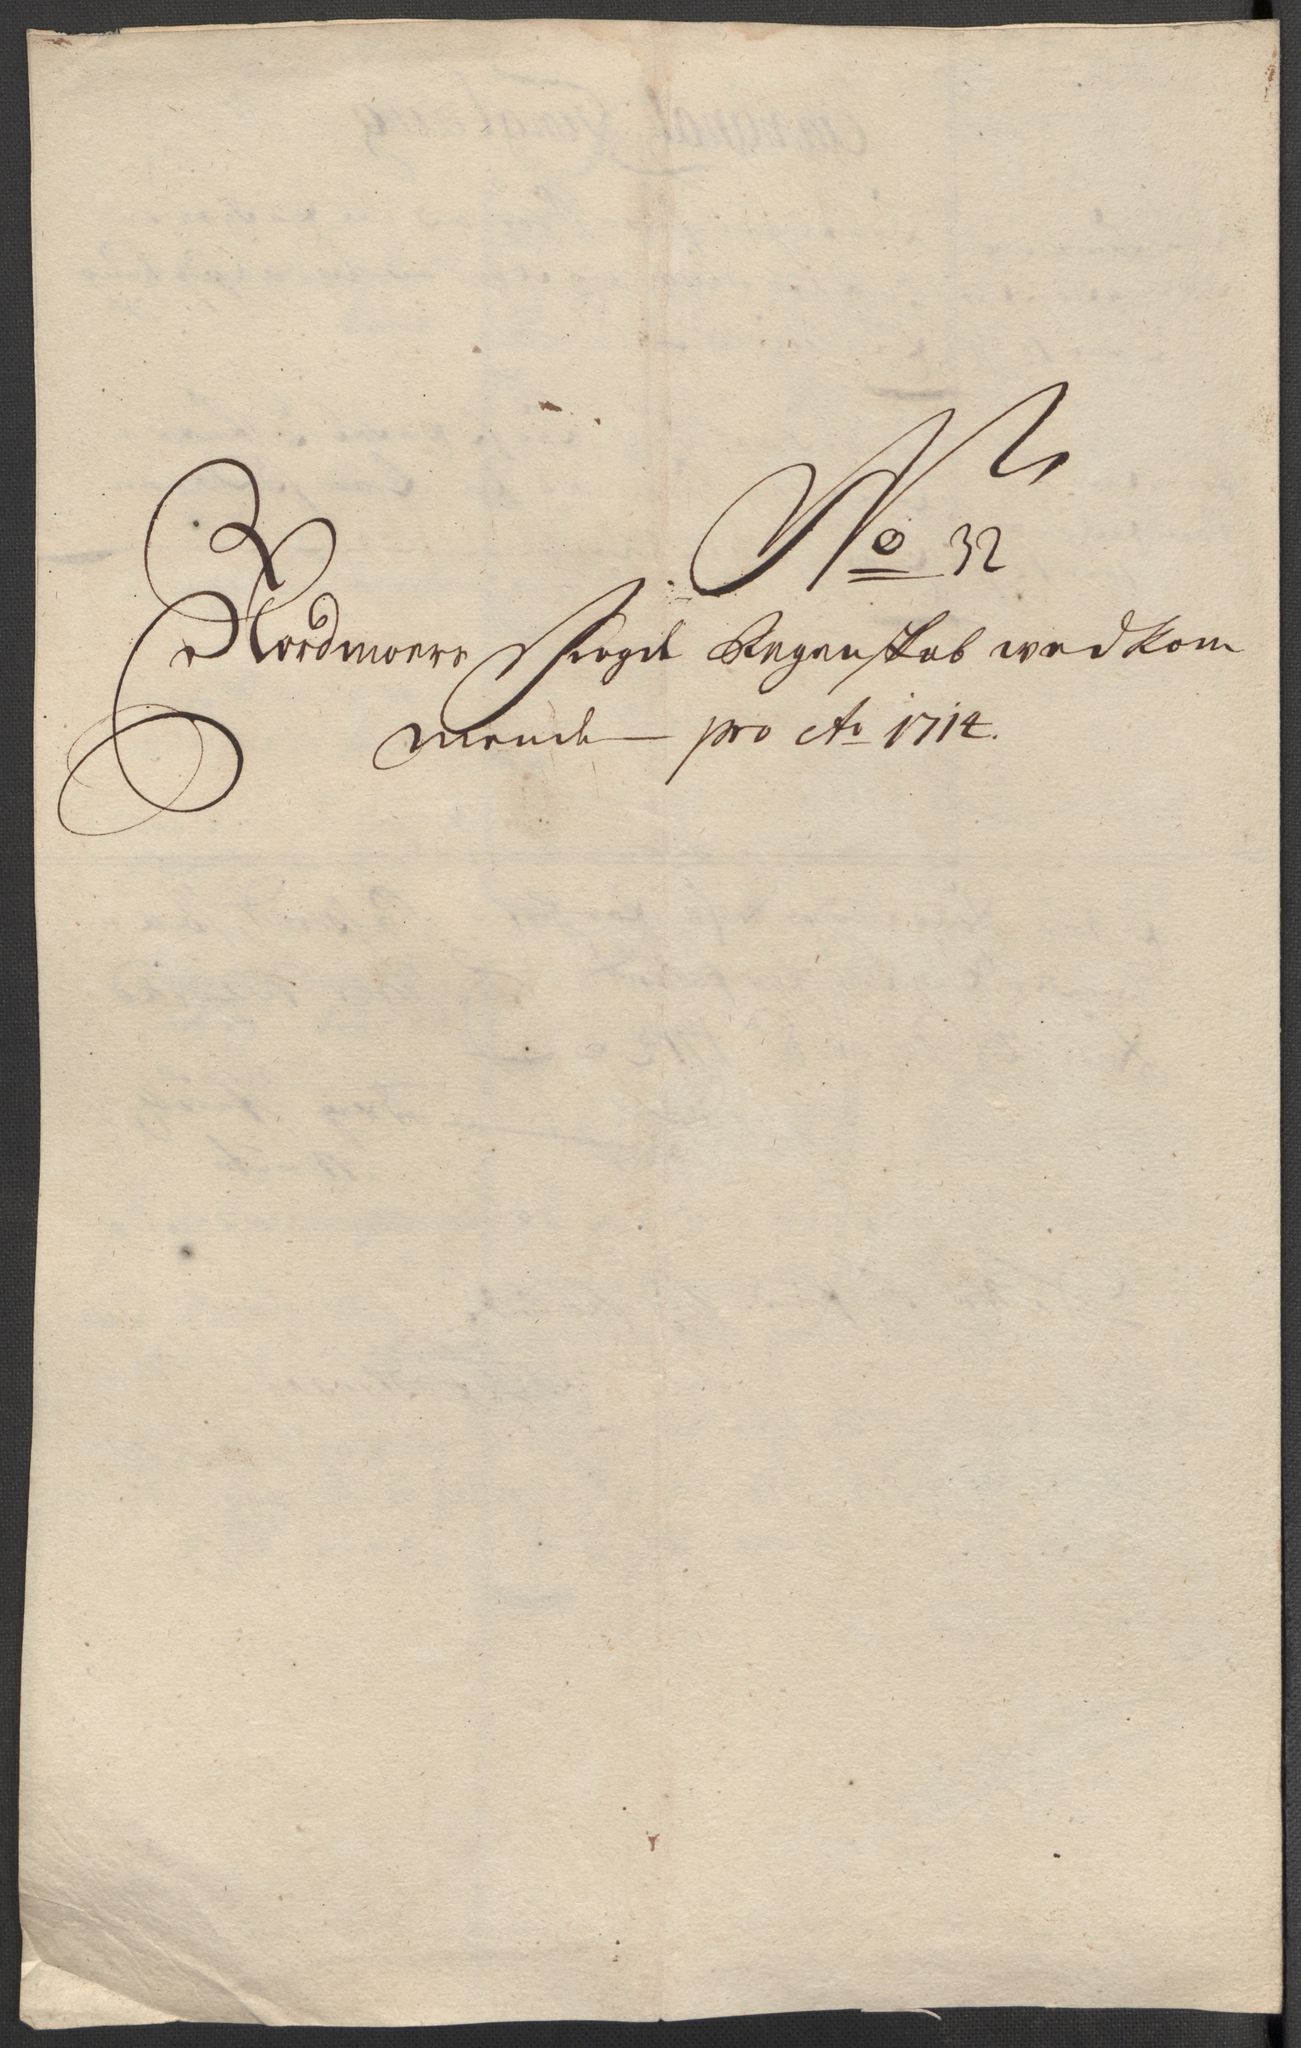 No 32
Nordmoers Fogd Regenskab wedkom
mende pro Ao 1714.